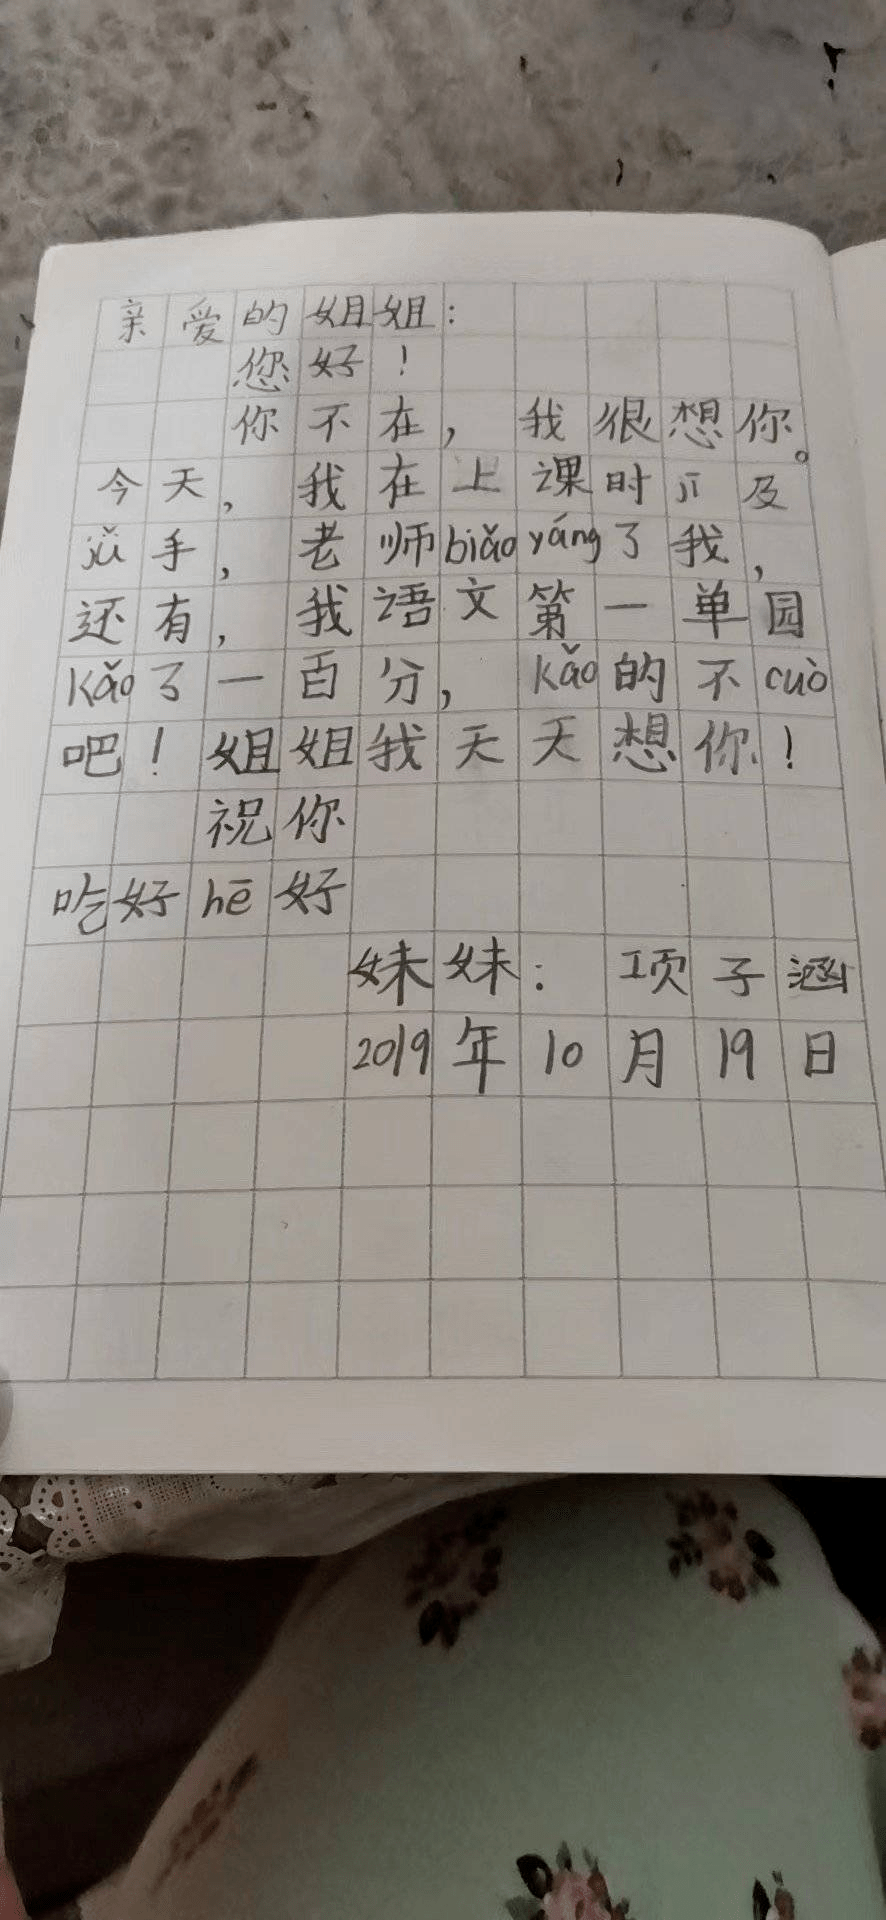 亲爱的姐姐：
您好！
你不在，我很想你。
今天，我在上课时jī及
jǔ手，老师biǎoyáng了我，
还有，我语文第一单园
kǎo了一百分，kǎo的不cuò
吧！姐姐我天天想你！
祝你
吃好hē好
妹妹：项子涵
2019年10月19日